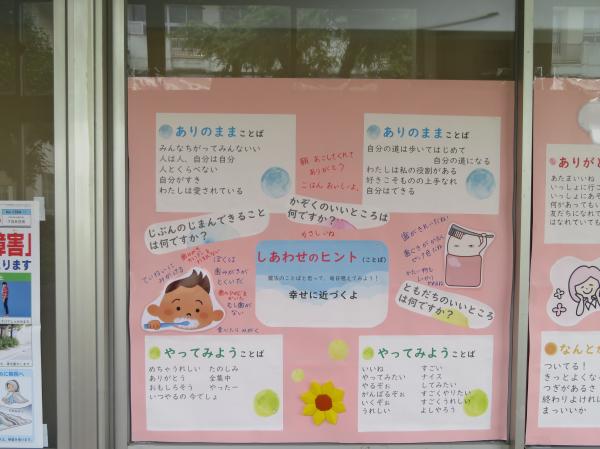 ありのまま ことば
みんなちがってみんないい
人は人、自分は自分
人とくらべない
自分がすき
わたしは愛されている
ありのまま ことば
自分の道は歩いてはじめて
自分の道になる
わたしは私の役割がある
好きこそものの上手なれ
自分はできる
朝 おこしてくれて
ありがとう
ごはん おいしいよ。
じぶんのじまんできること
は何ですか?
かぞくのいいところは
何ですか?
やさしいね
しあわせのヒント(ことば)
魔法のことばと思って、毎日唱えてみよう!
幸せに近づくよ
ていねいに
みがける
ぼくは
歯みがきが
とくいだ
むし歯が
ない
食べたらみがく
歯がきれいだね!
ともだちのいいところ
は何ですか?
やってみよう ことば
めちゃうれしい たのしみ
ありがとう 全集中
おもしろそう やったー
いつやるの 今でしょ
やってみよう ことば
いいね すごい
やってみたい ナイス
やるぞぉ してみたい
がんばるぞぉ すごくやりたい
いくぞぉ すごくうれしい
うれしい よしやろう
ありがと
あたまいいね
いっしょに行こ
いっしょにあそ
何があっても
友だちになれて
はなれていても
なんとか
ついてる!
きっとよくなる
つぎがあるさ
終わりよければ
まっいいか
障害」
ります